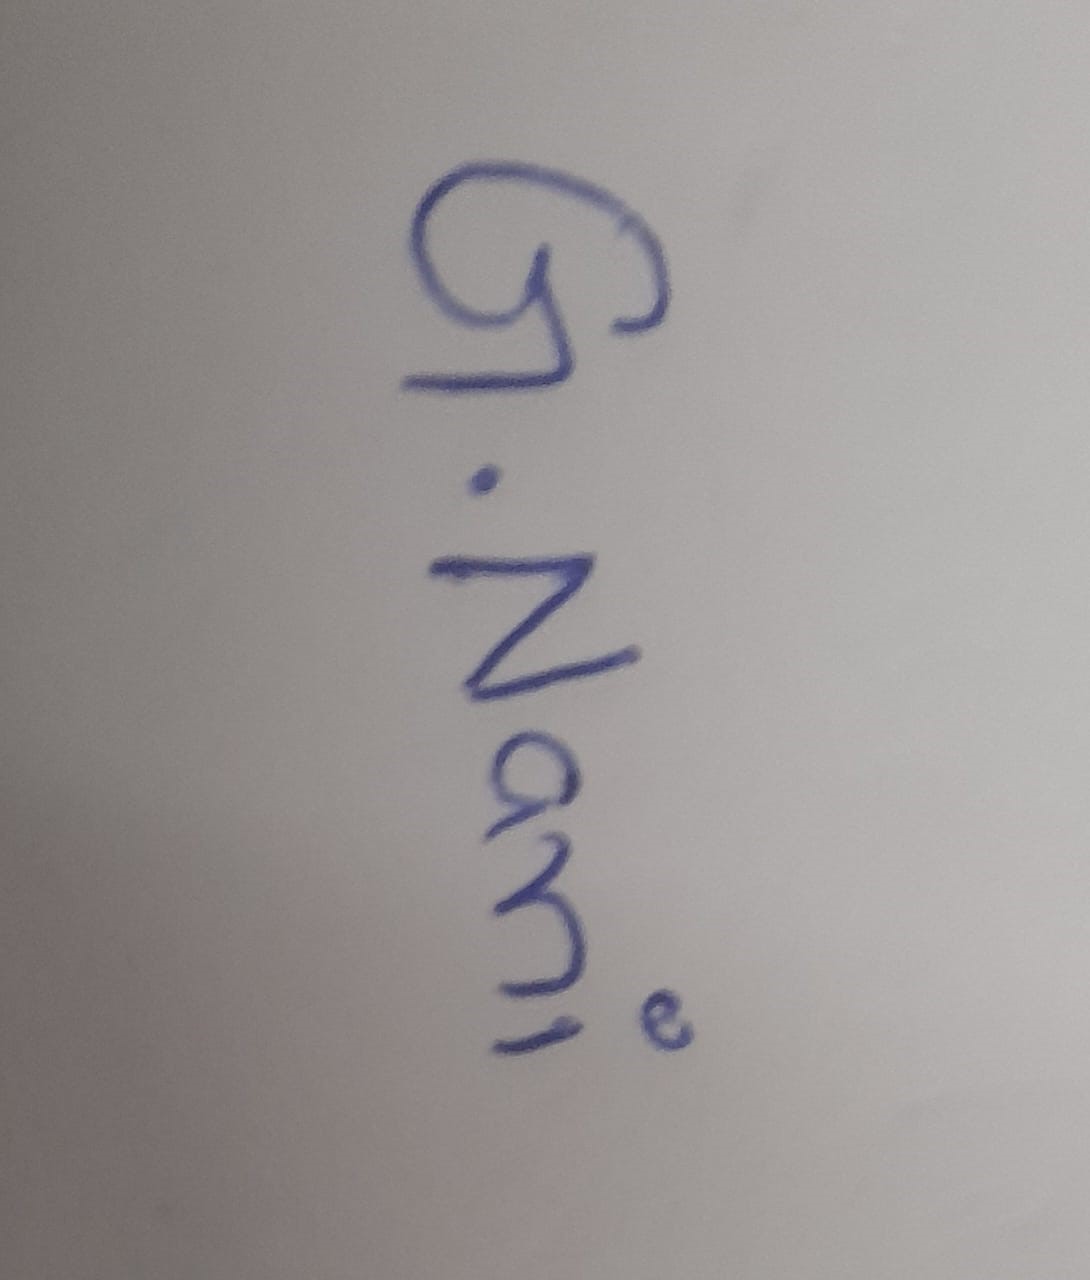 G. Nami